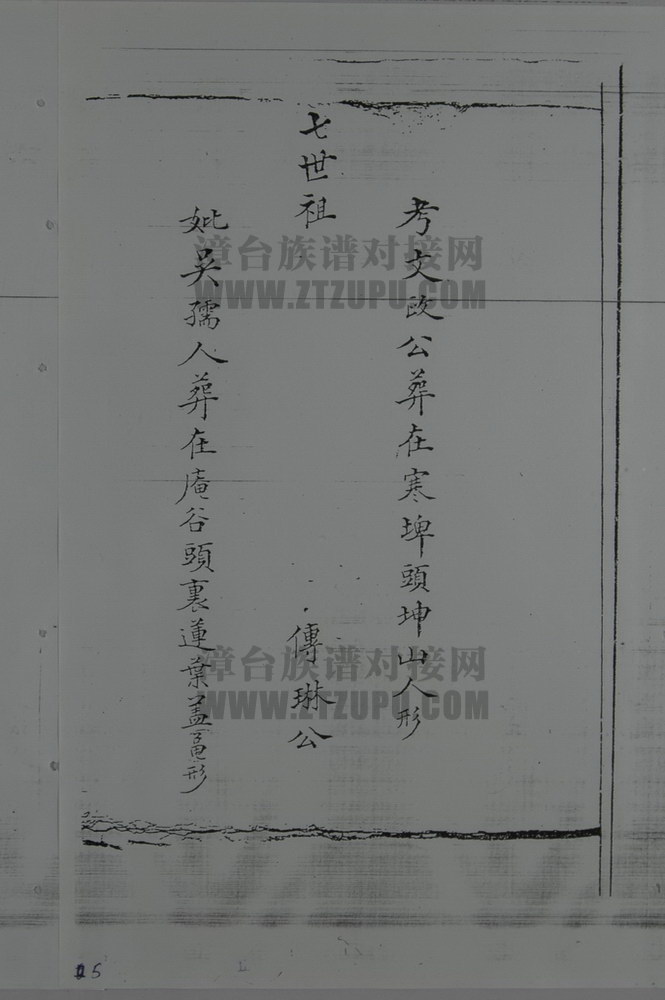 考文政公葬在寒埤頭坤山人形
七世祖 傳琳公
妣吳孺人葬在庵谷頭裏蓮葉盖黽形
漳台族谱对接网
WWW.ZTZUPU.COM
漳台族谱对接网
WWW.ZTZUPU.COM
25